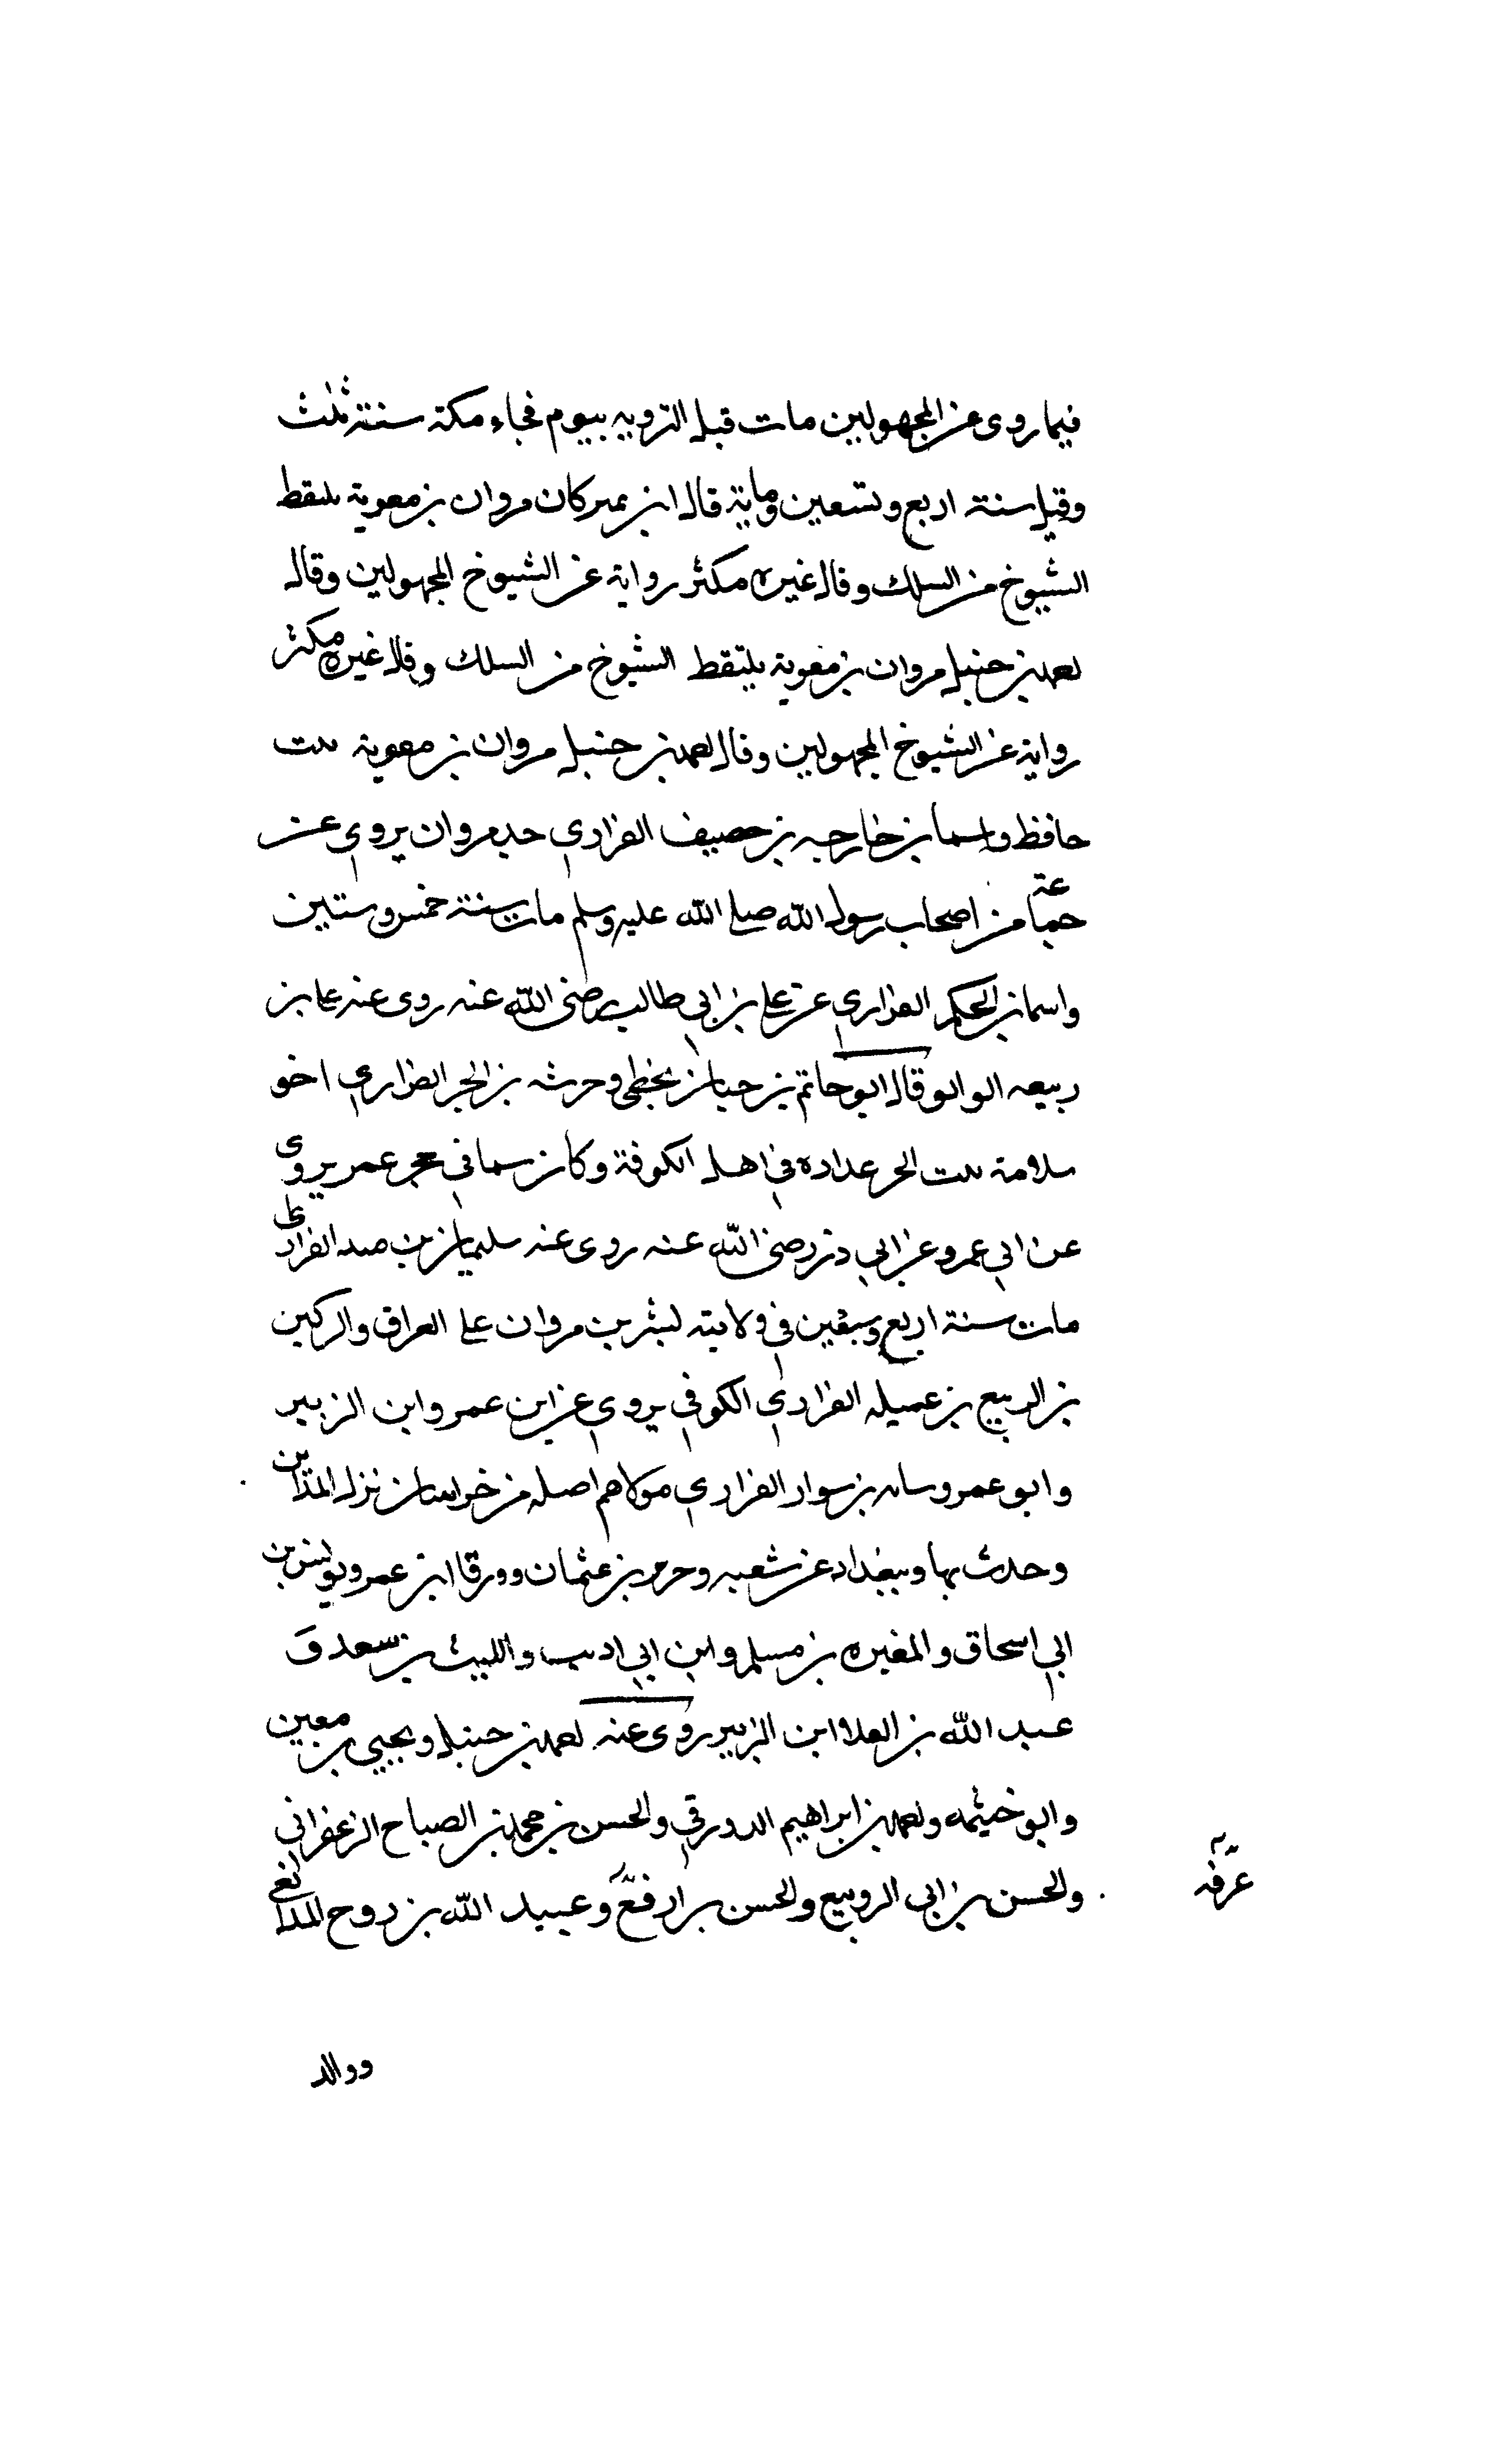 فيما روى عن المجهولين مات قبل الترويه بيوم فجاء مكة سنة ثلث
وقيل سنة اربع وتسعين وماية قال ابن نمير كان مروان بن معوية يلتقط
الشيوخ من السكك وقال غيره مكثر رواية عن الشيوخ المجهولين وقال
احمد بن حنبل مروان بن معوية يلتقط الشيوخ من السكك وقال غيره مكثر
رواية عن الشيوخ المجهولين وقال احمد بن حنبل مروان بن معوية ثبت
حافظ واسما بن خارجه بن حصيف الفزاري جد مروان يروي عن
جماعة من اصحاب رسول الله صلى الله عليه وسلم مات سنة خمس وستين
واسما بن الحكم الفزاري عن علي بن ابي طالب رضى الله عنه روى عنه علي بن
ربيعه الوالبي قال ابو حاتم بن حبان يخطى وخرشه بن الحر الفزاري اخو
سلامة بنت الحر عداده في اهل الكوفة وكان يتيما في حجر عمر يروي
عن ابي عمر وعن ابي ذر رضى الله عنه روى عنه سليمان بن الفزاري
مات سنة اربع وسبعين في ولايته لبشر بن مروان على العراق والركين
بن الربيع بن عميله الفزاري الكوفي يروي عن ابن عمر وابن الزبير
وابو عمرو بن سوار الفزاري مولاهم اصله من خراسان نزل المداين
وحدث بها وببغداد عن شعبه وحريز بن عثمان وورقا ابن عمر ويونس بن
ابي اسحاق والمغيره بن مسلم وابن ابي اديب والليث بن سعد و
عبد الله بن العلا ابن الزبير روى عنه احمد بن حنبل ويحيى بن معين
وابو خيثمه واحمد بن ابراهيم الدورقي والحسن بن محمد بن الصباح الزعفراني
والحسن بن ابي الربيع والحسن بن ارفع وعبيد الله بن روح المدايني
عرفه
ووالد